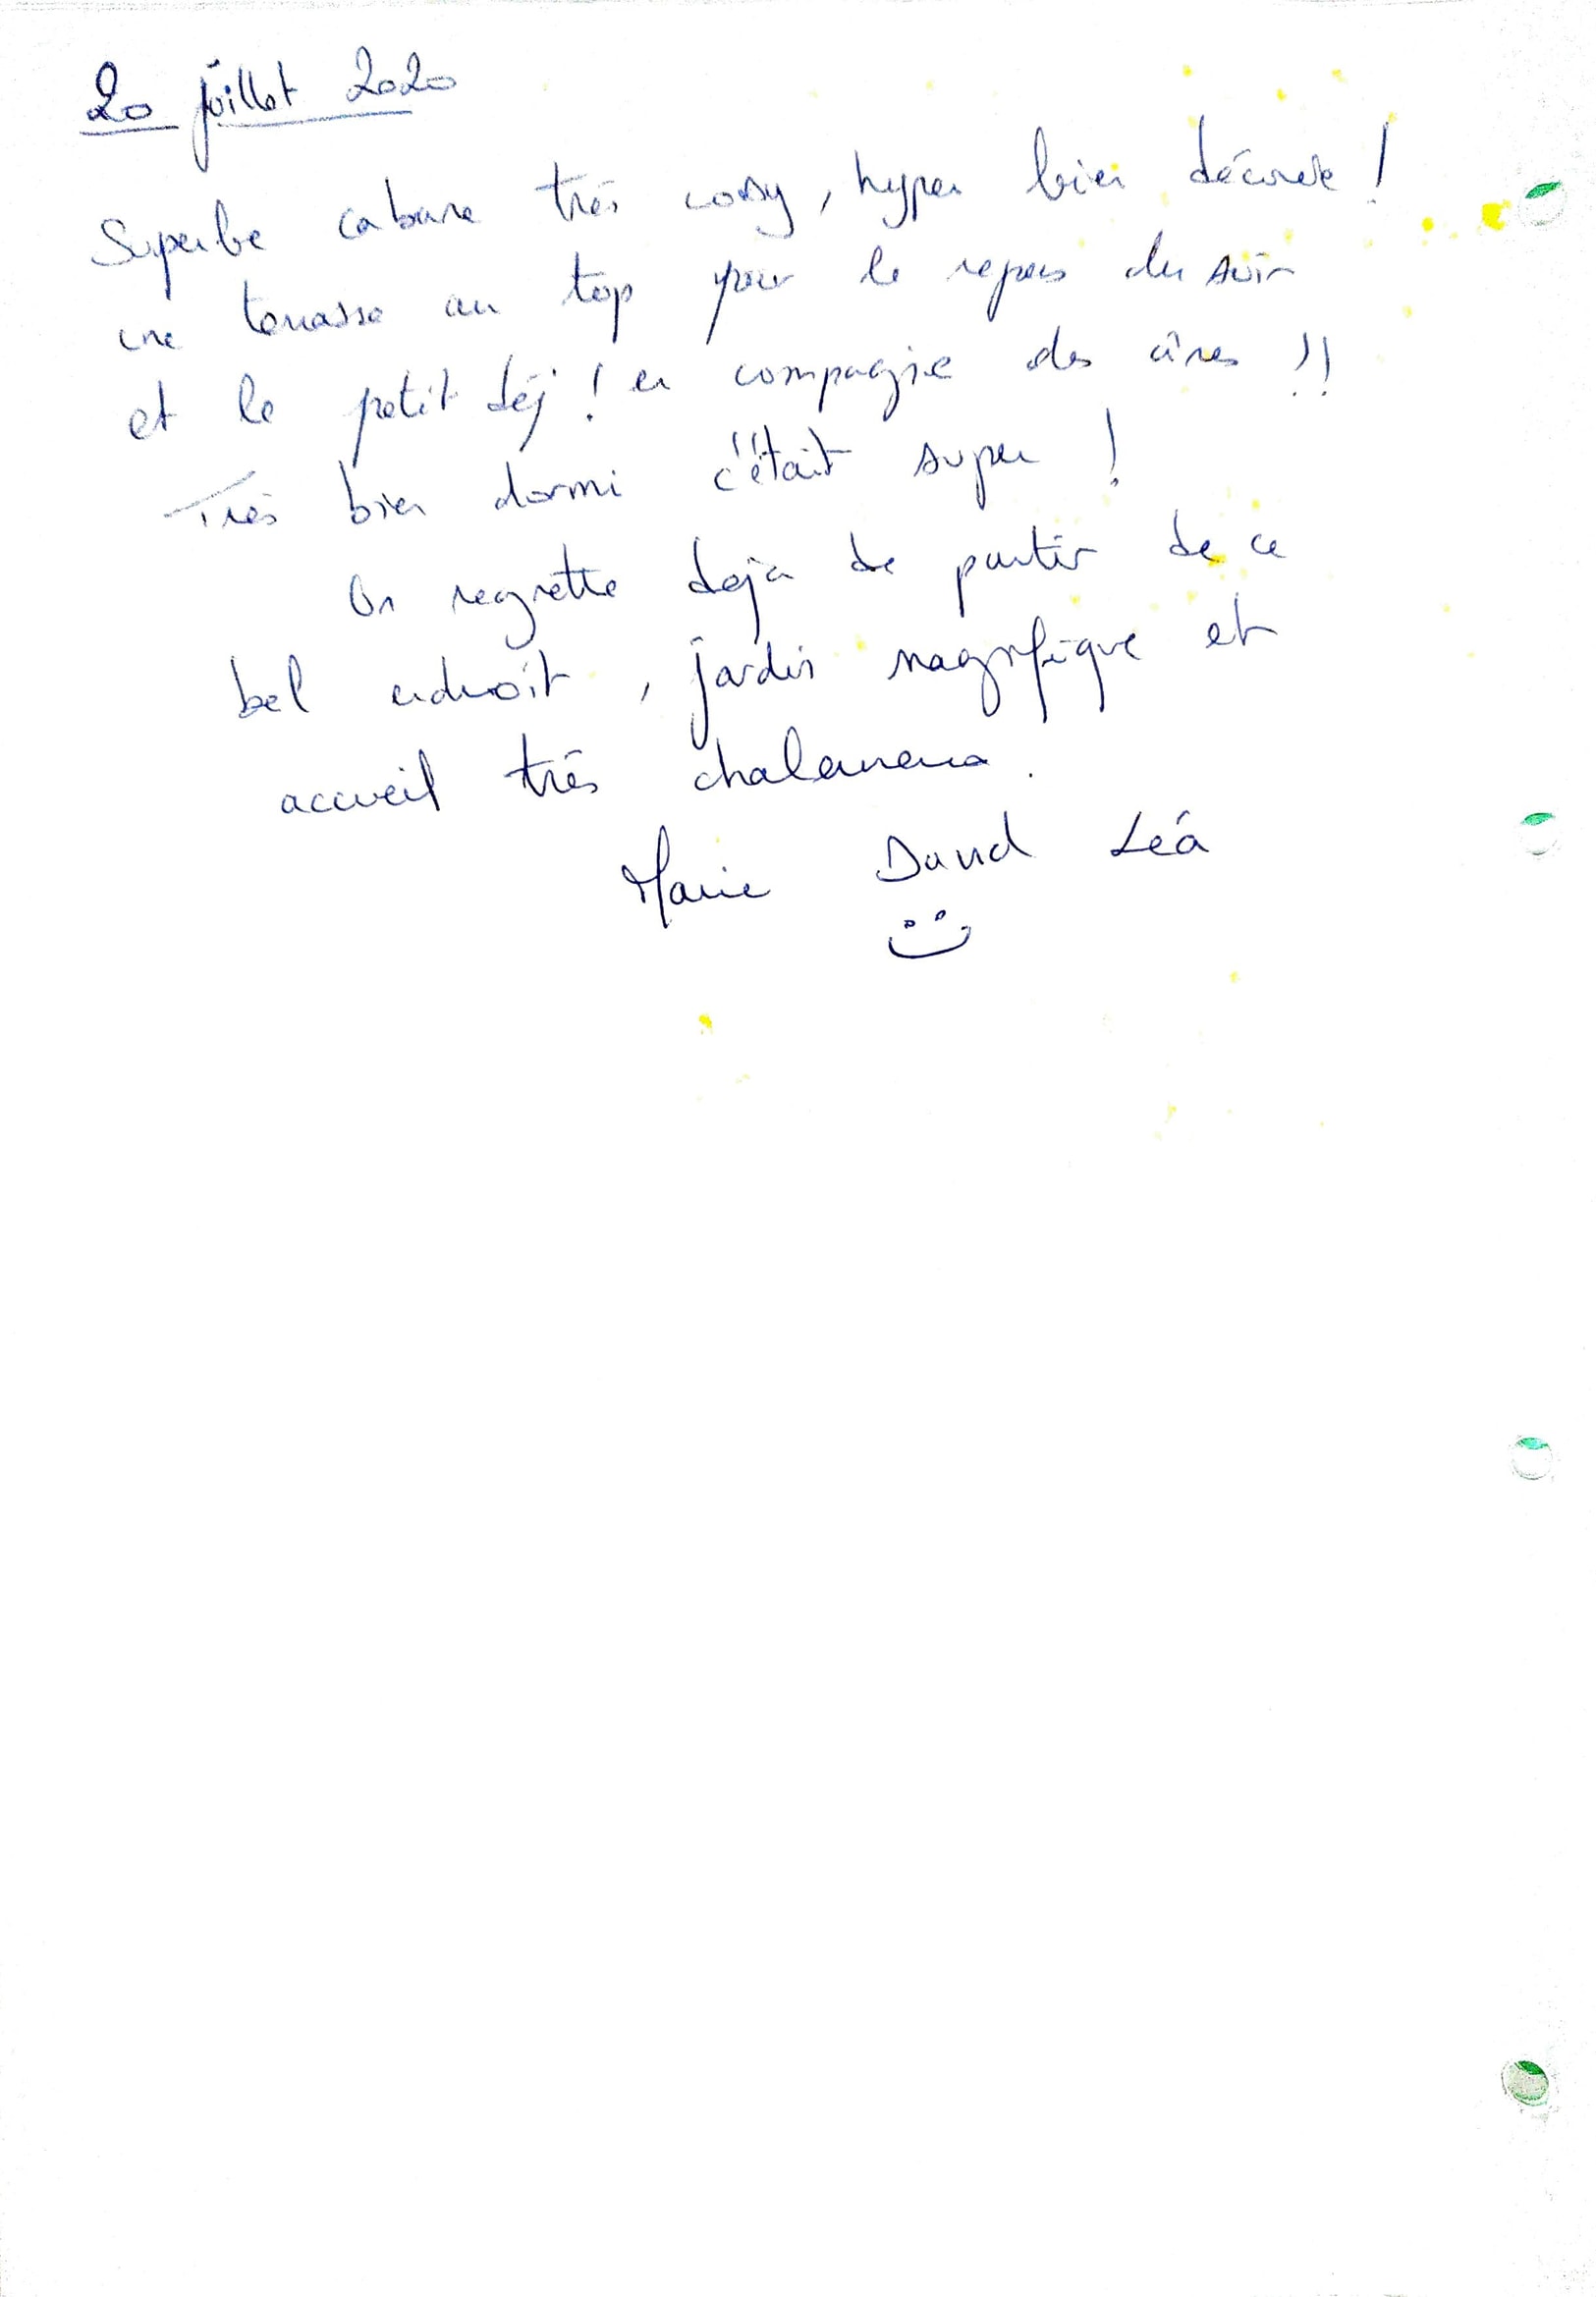 20 juillet 2020
Superbe cabane très cosy, hyper bien décorée !
une terrasse au top pour le repas du soir
et le petit déj ! en compagnie des ânes !!
Très bien dormi c'était super !
On regrette déjà de partir de ce
bel endroit, jardin magnifique et
accueil très chaleureux.
Marie David Léa